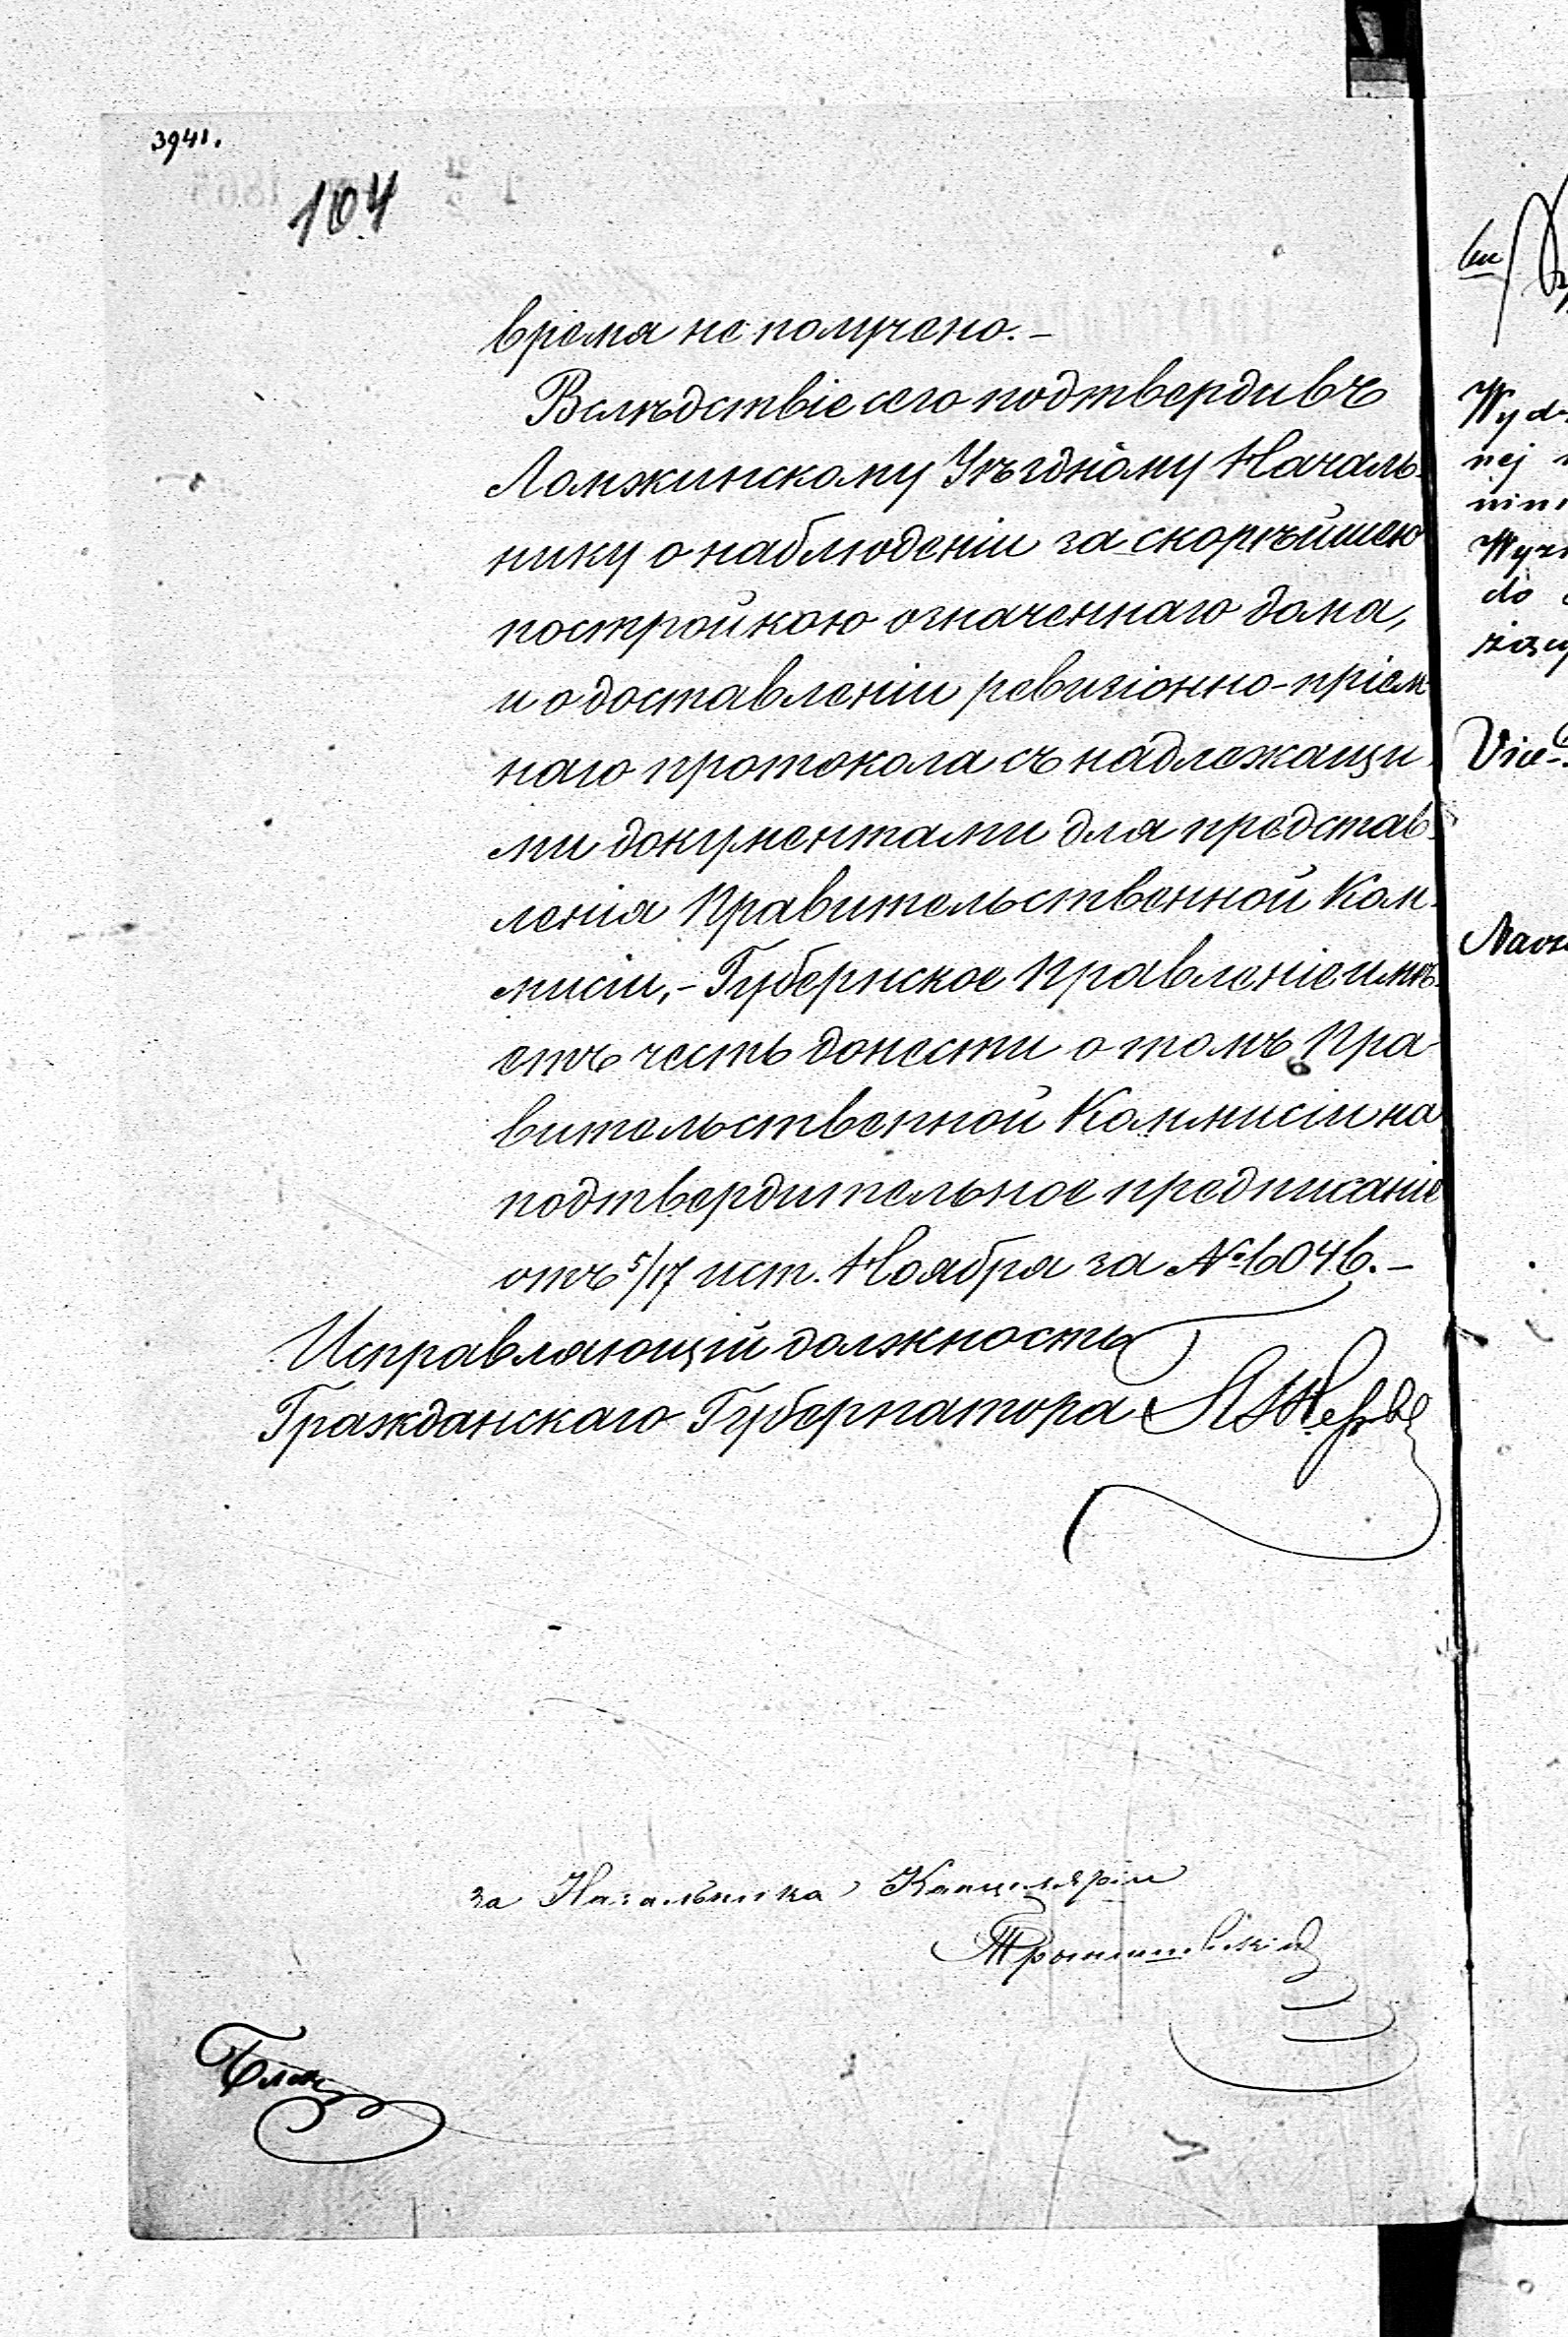 3941.
104
время не получено.-
Вслѣдствіе сего подтвердивъ
Ломжинскому Уѣздному Началь-
нику о наблюденіи за скорѣйшею
постройкою означеннаго дома,
и о доставленіи ревизіонно-пріем-
наго протокола съ надлежащи-
ми документами для представ-
ленія Правительственной Ком-
мисіи,- Губернское Правленіе имѣ-
етъ честь донести о томъ Пра-
вительственной Коммисіи на
подтвердительное предписаніе
отъ 5/17 ист. Ноября за № 6046.-
Исправляющій должность
Гражданскаго Губернатора
за Начальника Канцеляріи
Wyd
nej
Wyz
do
Vice-